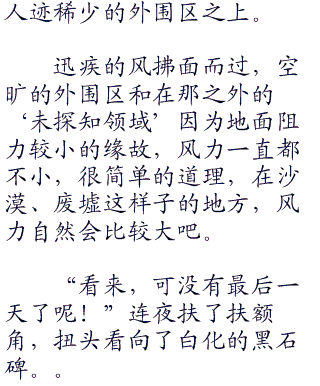 人迹稀少的外围区之上。
迅疾的风拂面而过，空
旷的外围区和在那之外的
‘未探知领域’因为地面阻
力较小的缘故，风力一直都
不小，很简单的道理，在沙
漠、废墟这样子的地方，风
力自然会比较大吧。
“看来，可没有最后一
天了呢！”连夜扶了扶额
角，扭头看向了白化的黑石
碑。。